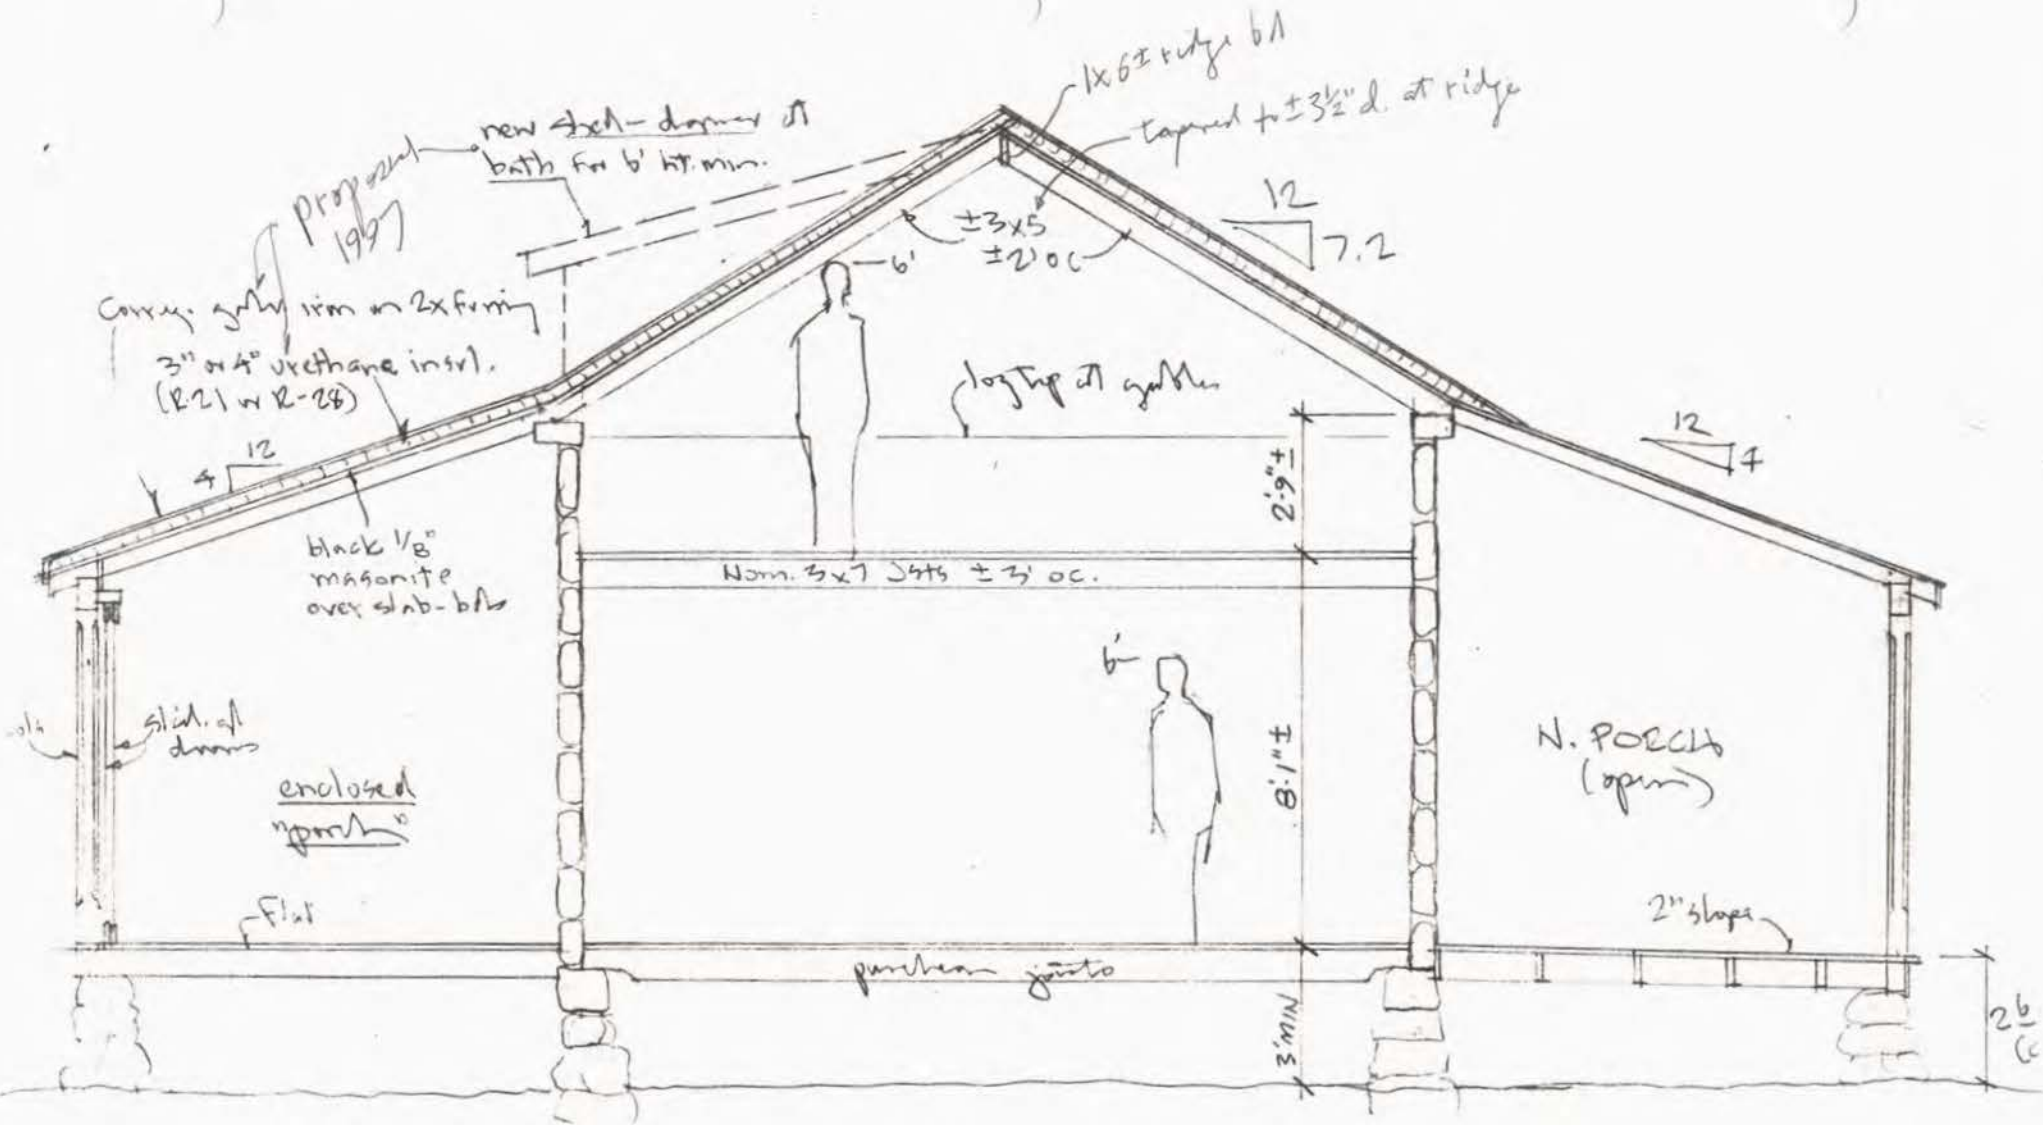 1x6± ridge bd
tapered to ±3½" d. at ridge
new shed-dormer at
bath for 6' ht. min.
proposal
1997
12
7.2
±3x5
±2' oc
6'
Corrug. galv. iron on 2x furring
3" or 4" urethane insul.
(R-21 or R-28)
log top at gables
12
4
12
4
2'-9"±
black 1/8"
masonite
over slab-bds
Nom. 3x7 Jsts ± 3' oc.
6'
slid. gl
doors
8'-1"±
N. PORCH
(open)
enclosed
"porch"
Flat
2" slope
puncheon joists
3' MIN